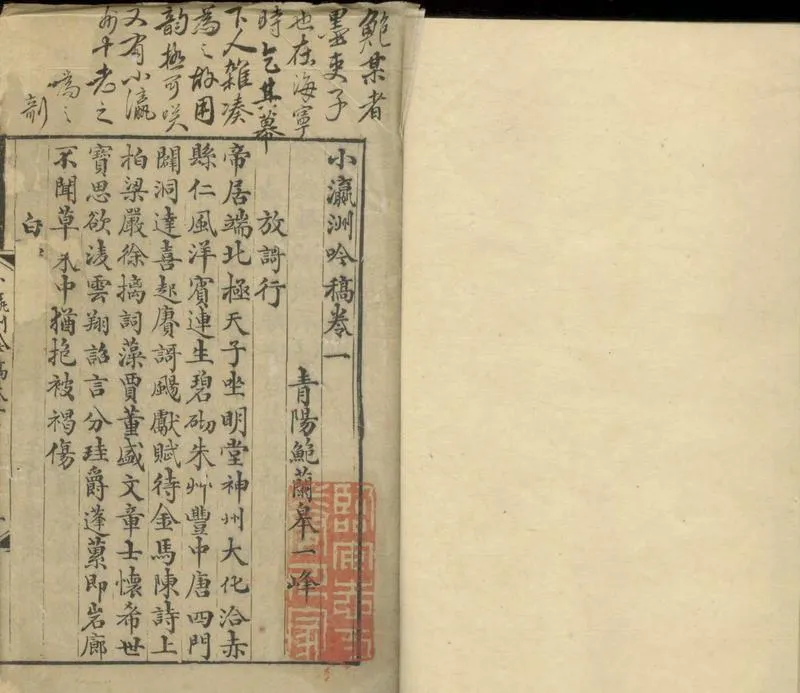 鮑某者
墨吏子
也在海寧
時乞其幕
下人雜湊
為之故用
韵極可笑
又有小瀛
州十老之
小瀛洲吟稿卷一
青陽鮑蘭皋一峰
放謌行
帝居端北極天子坐明堂神州大化洽赤
縣仁風洋賓連生碧砌朱艸豐中唐四門
闢洞達喜起賡謌颺獻賦待金馬陳詩上
柏梁嚴徐摛詞藻賈董盛文章士懷希世
寶思欲淩雲翔詔言分珪爵蓬即岩廊
不聞草中猶抱被褐傷
白